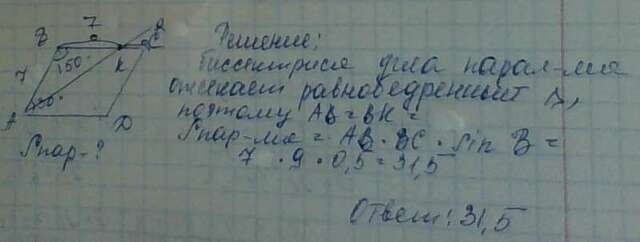 7
В
К
С
7
150°
А
Д
Sпар-?
Решение:
Биссектриса угла парал-ма
отсекает равнобедренный △,
поэтому АВ = ВК =
Sпар-ма = АВ · ВС · sin В =
7 · 9 · 0,5 = 31,5
Ответ: 31,5